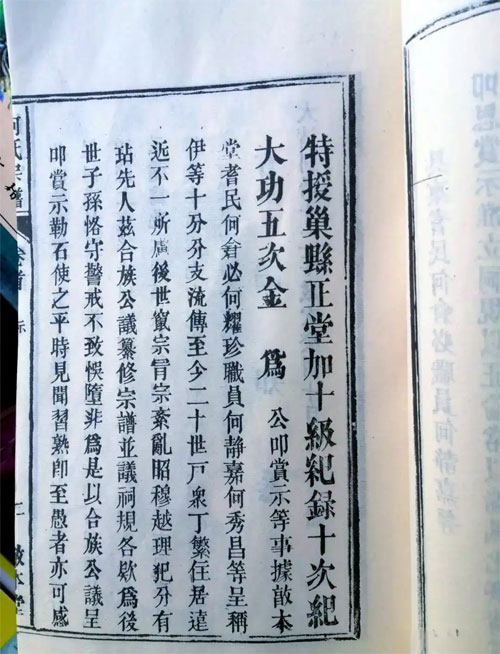 特授巢縣正堂加十級紀錄十次紀
大功五次金 爲 公叩賞示等事據敵本
堂耆民何會必何耀珍職員何靜嘉何秀昌等呈稱
伊等十分分支流傳至今二十世戸衆丁繁住居遠
近不一所慮後世竄宗冒宗紊亂昭穆越理犯分有
玷先人茲合族公議纂修宗譜並議祠規各欵爲後
世子孫恪守警戒不致悞墮非爲是以合族公議呈
叩賞示勒石使之平時見聞習熟卽至愚者亦可感
何氏宗譜 卷首 示 二 敵本堂